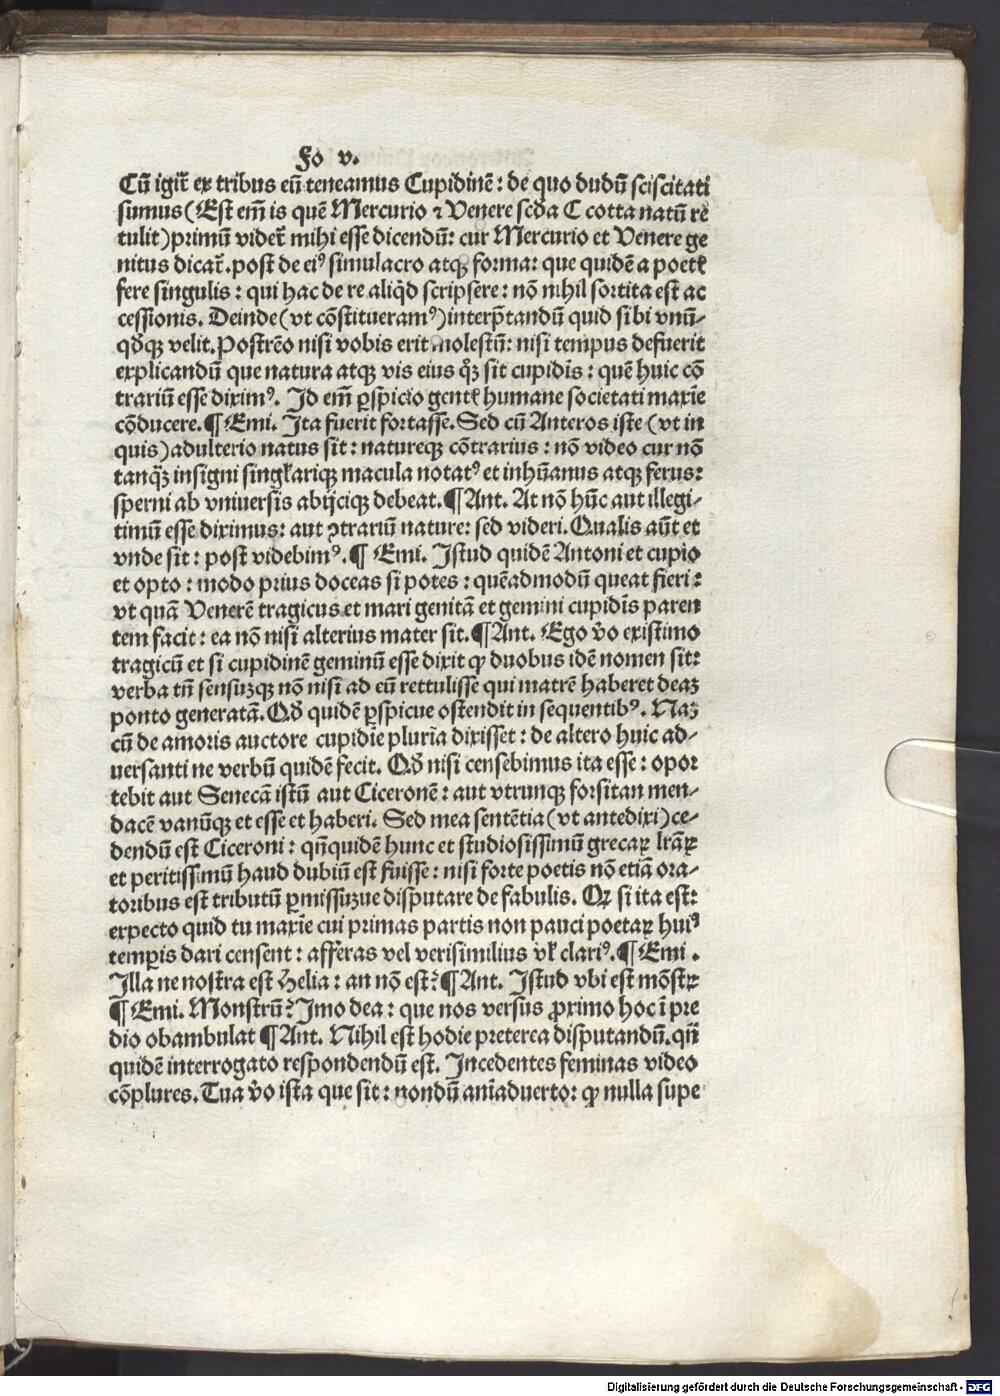 Fo v.
Cū igit᷑ ex tribus eū teneamus Cupidinē: de quo dudū sciscitati
sumus (Est em̄ is quē Mercurio ⁊ Venere scḋa C cotta natū re
tulit) primū videt᷑ mihi esse dicendū: cur Mercurio et Venere ge
nitus dicat᷑. post de eiꝰ simulacro atqꝫ forma: que quidē a poetꝭ
fere singulis: qui hac de re aliq̇d scripsere: nō nihil sortita est ac
cessionis. Deinde (vt cōstitueramꝰ) interp̄tandū quid sibi vnū-
qḋqꝫ velit. Postrēo nisi vobis erit molestū: nisi tempus defuerit
explicandū que natura atqꝫ vis eius q̊ꝫ sit cupidīs: quē huic cō
trariū esse diximꝰ. Id em̄ ꝑspicio gentꝭ humane societati maxīe
cōducere. ¶ Emi. Ita fuerit fortasse. Sed cū Anteros iste (vt in
quis) adulterio natus sit: natureqꝫ cōtrarius: nō video cur nō
tanqꝫ̄ insigni singl̓ariqꝫ macula notatꝰ et inhūanus atqꝫ ferus:
sperni ab vniuersis abijciqꝫ debeat. ¶ Ant. At nō hūc aut illegi-
timū esse diximus: aut ꝯtrariū nature: sed videri. Qualis aūt et
vnde sit: post videbimꝰ. ¶ Emi. Istud quidē Antoni et cupio
et opto: modo prius doceas si potes: quēadmodū queat fieri:
vt quā Venerē tragicus et mari genitā et gemini cupidīs paren
tem facit: ea nō nisi alterius mater sit. ¶ Ant. Ego v̊o existimo
tragicū et si cupidinē geminū esse dixit ꝙ duobus idē nomen sit:
verba tn̄ sensuꝫqꝫ nō nisi ad eū rettulisse qui matrē haberet deaꝫ
ponto generatā. Qḋ quidē ꝑspicue ostendit in sequentibꝰ. Naꝫ
cū de amoris auctore cupidīe plurīa dixisset: de altero huic ad-
uersanti ne verbū quidē fecit. Qḋ nisi censebimus ita esse: opor
tebit aut Senecā istū aut Ciceronē: aut vtrunqꝫ forsitan men-
dacē vanūqꝫ et esse et haberi. Sed mea sentētia (vt antedixi) ce-
dendū est Ciceroni: qn̄quidē hunc et studiosissimū grecaꝝ lr̄aꝝ
et peritissimū haud dubiū est fuisse: nisi forte poetis nō etiā ora-
toribus est tributū ꝑmissuꝫue disputare de fabulis. Qꝝ si ita est:
expecto quid tu maxīe cui primas partis non pauci poetaꝝ huiꝰ
temꝑis dari censent: afferas vel verisimilius vl̓ clariꝰ. ¶ Emi.
Illa ne nostra est Helia: an nō est? ¶ Ant. Istud vbi est mōstꝝ
¶ Emi. Monstrū? Imo dea: que nos versus ꝓximo hoc ī pre
dio obambulat ¶ Ant. Nihil est hodie preterea disputandū. qn̄
quidē interrogato respondendū est. Incedentes feminas video
cōplures. Tua v̊o ista que sit: nondū anīaduerto: ꝙ nulla supe
Digitalisierung gefördert durch die Deutsche Forschungsgemeinschaft - DFG